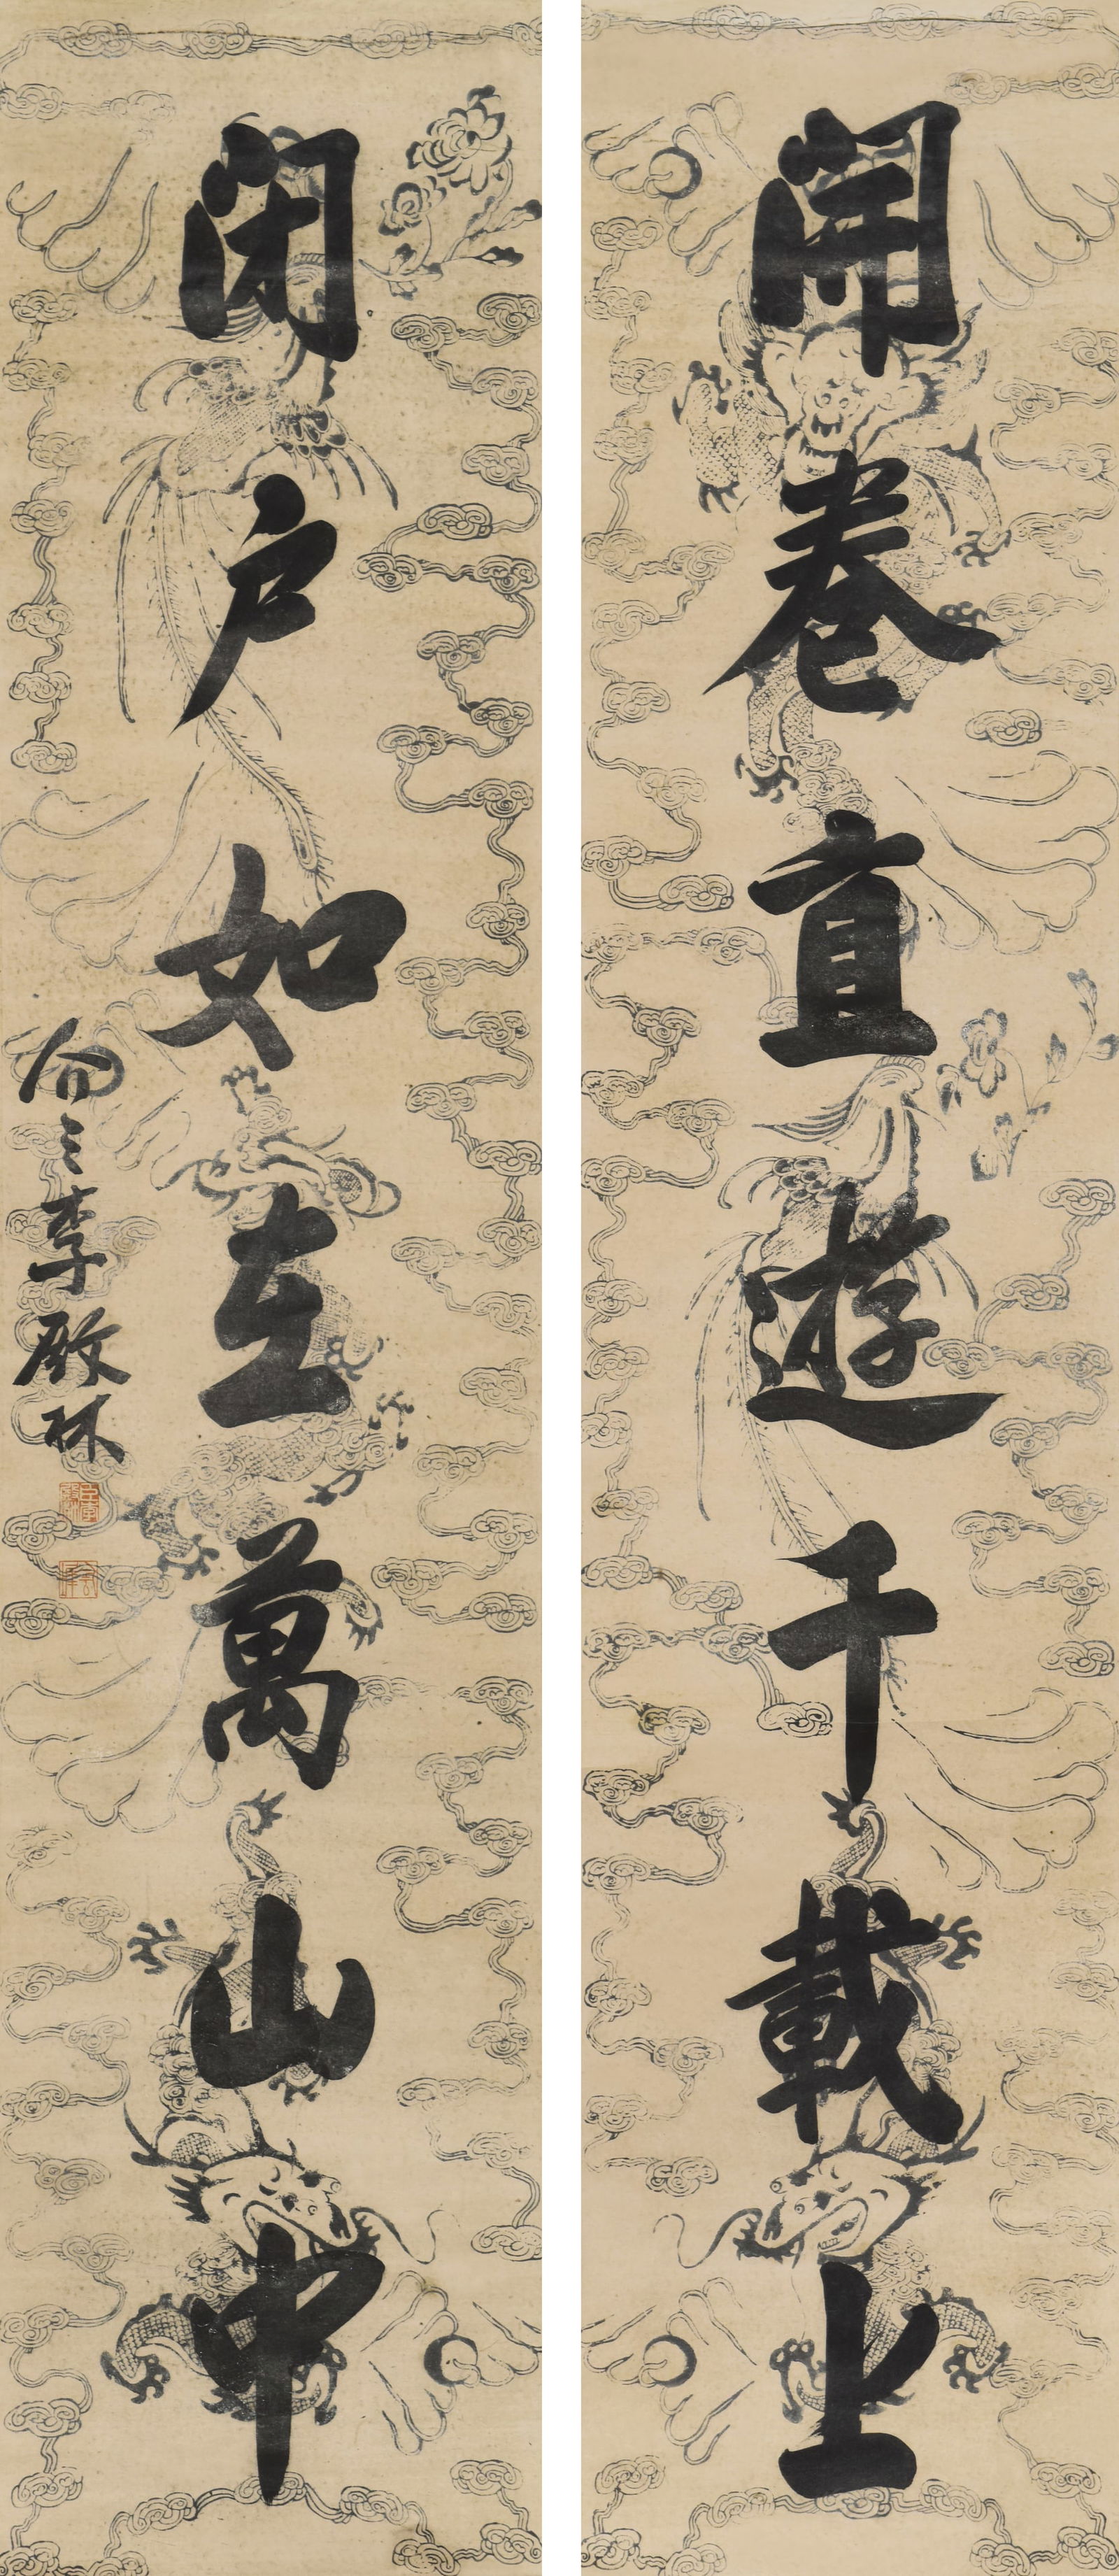 開卷直遊千載上
閉戶如在萬山中
李啟林